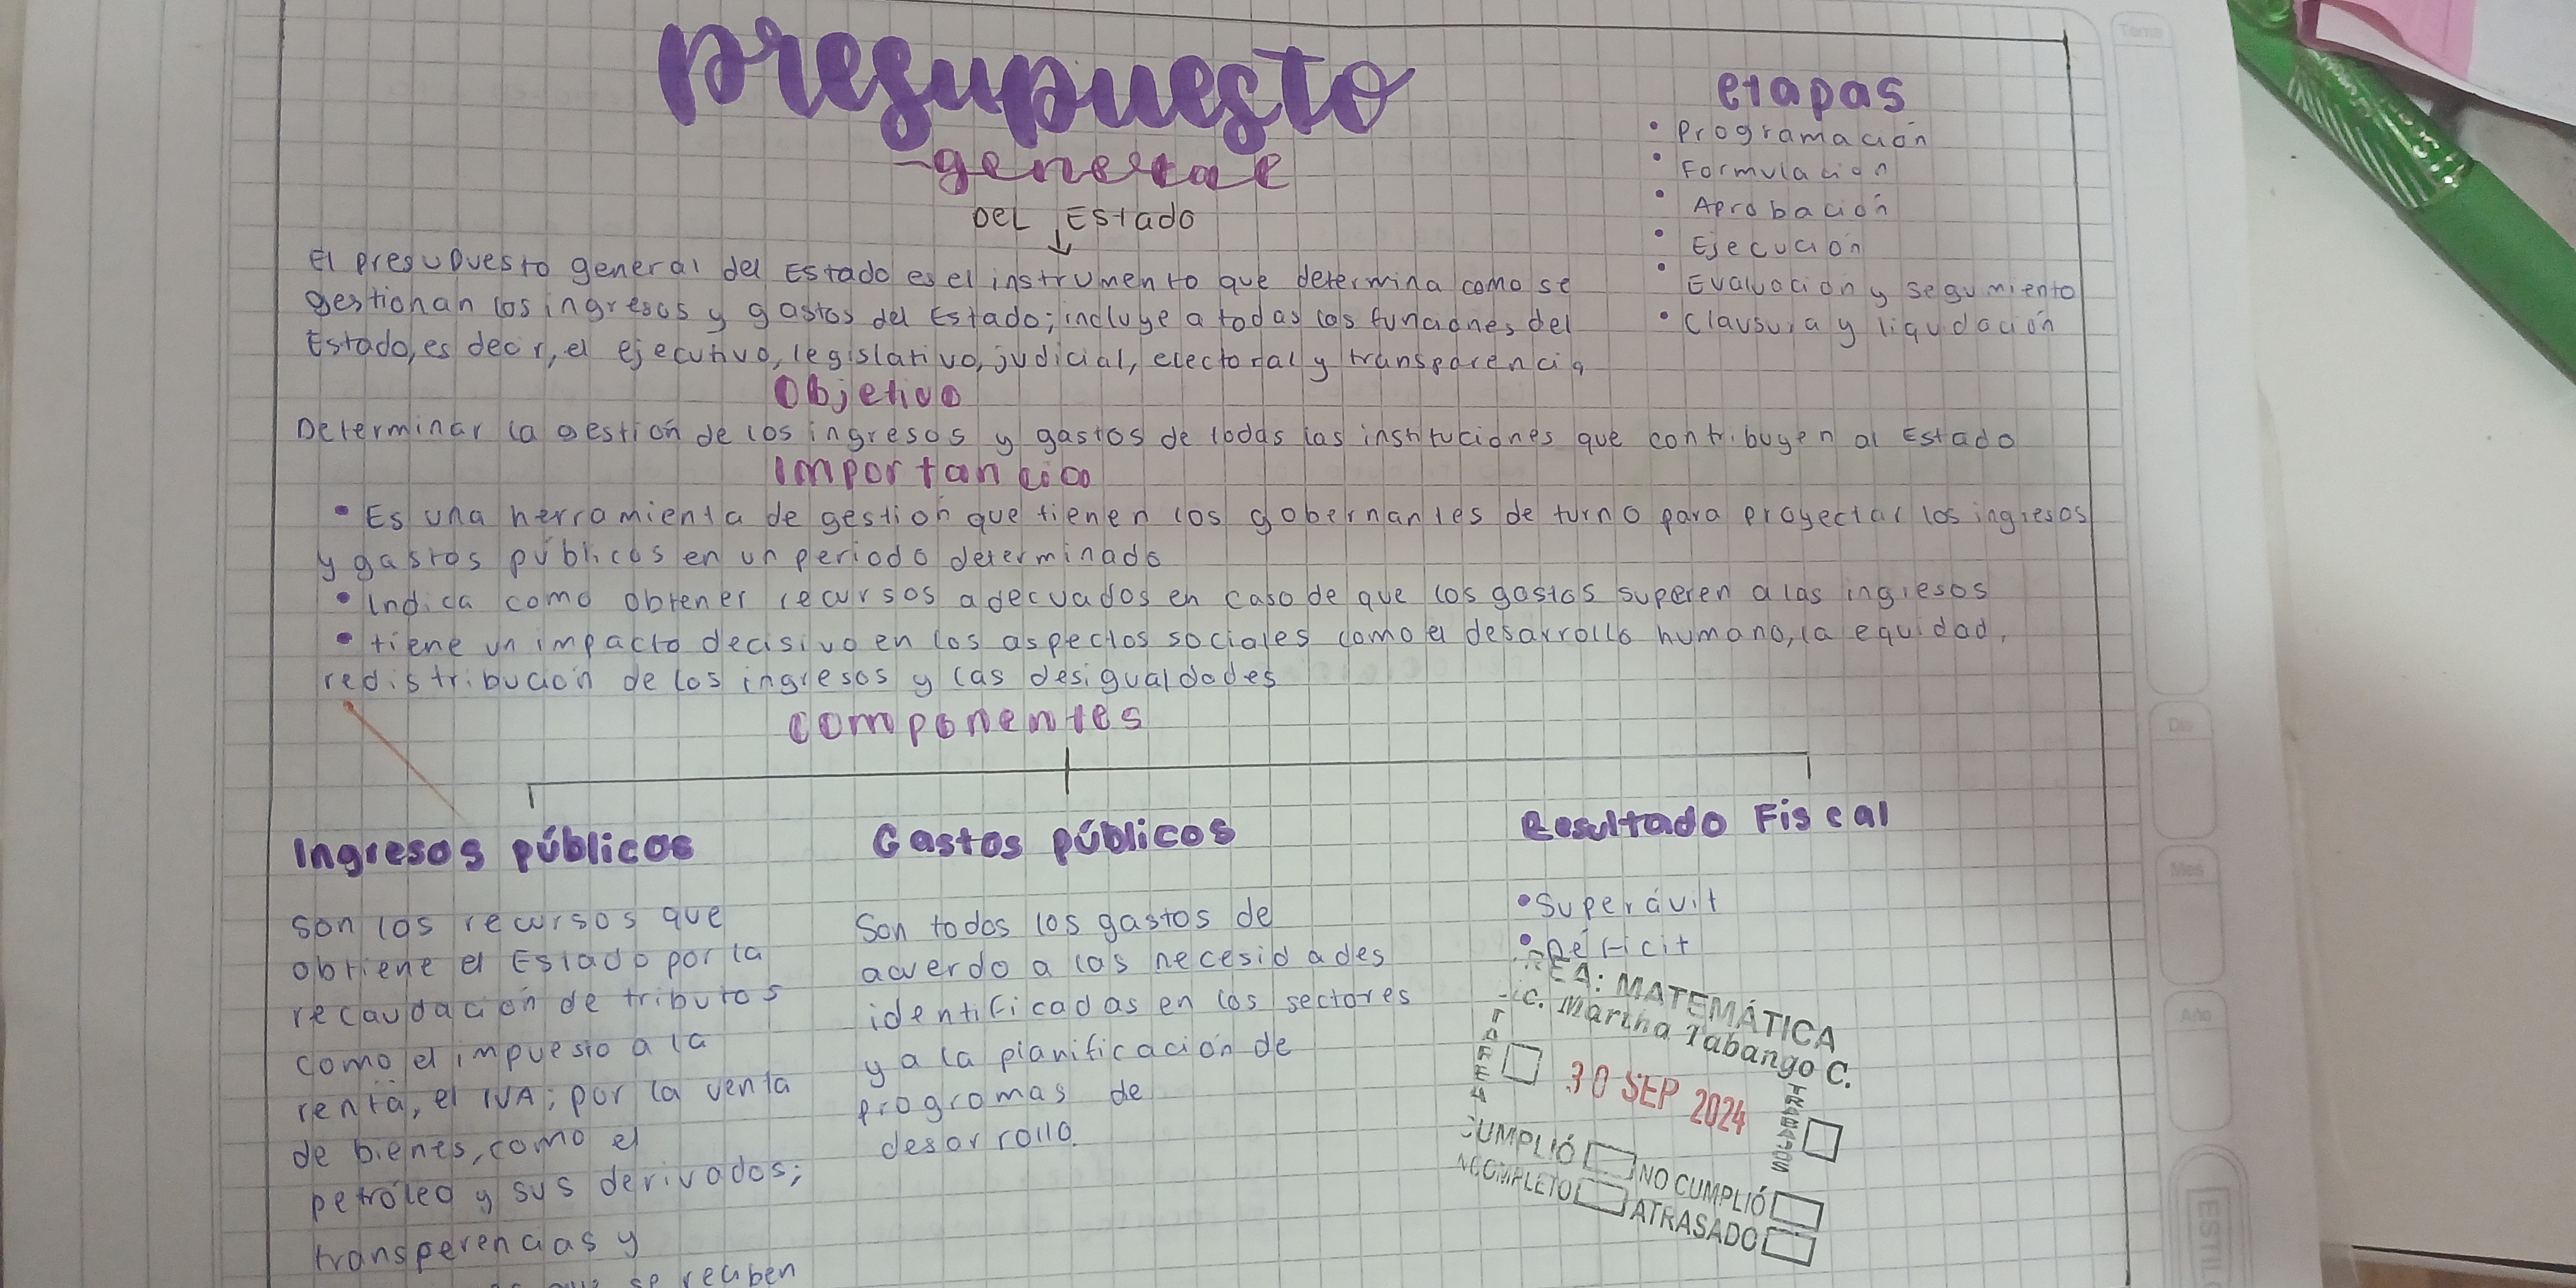 presupuesto
general
DEL Estado
El presupuesto general del Estado es el instrumento que determina como se
gestionan los ingresos y gastos del Estado; incluye a todas las funciones del
Estado, es decir, el ejecutivo, legislativo, judicial, electoral y transparencia
etapas
• Programación
• Formulación
• Aprobación
• Ejecución
• Evaluación y seguimiento
• Clausura y liqudación
Objetivo
Determinar la gestión de los ingresos y gastos de todas las instituciones que contribuyen al Estado
Importancia
• Es una herramienta de gestión que tienen los gobernantes de turno para proyectar los ingresos
y gastos públicos en un periodo determinado
• Indica como obtener recursos adecuados en caso de que los gastos superen a las ingresos
• tiene un impacto decisivo en los aspectos sociales como el desarrollo humano, la equidad,
redistribución de los ingresos y las desigualdades
componentes
Ingresos públicos
Son los recursos que
obtiene el Estado por la
recaudación de tributos
como el impuesto a la
renta, el IVA; por la venta
de bienes, como el
petróleo y sus derivados;
transperencias y
que se reciben
Gastos públicos
Son todos los gastos de
acuerdo a las necesidades
identificadas en los sectores
y a la planificación de
programas de
desarrollo.
Resultado Fiscal
• Superávit
• Déficit
REA: MATEMÁTICA
ic. Martha Tabango C.
TAREA
30 SEP 2024
TRABAJOS
CUMPLIÓ NO CUMPLIÓ
NCOMPLETO ATRASADO
Tema
Día
Mes
Año
ESTIL